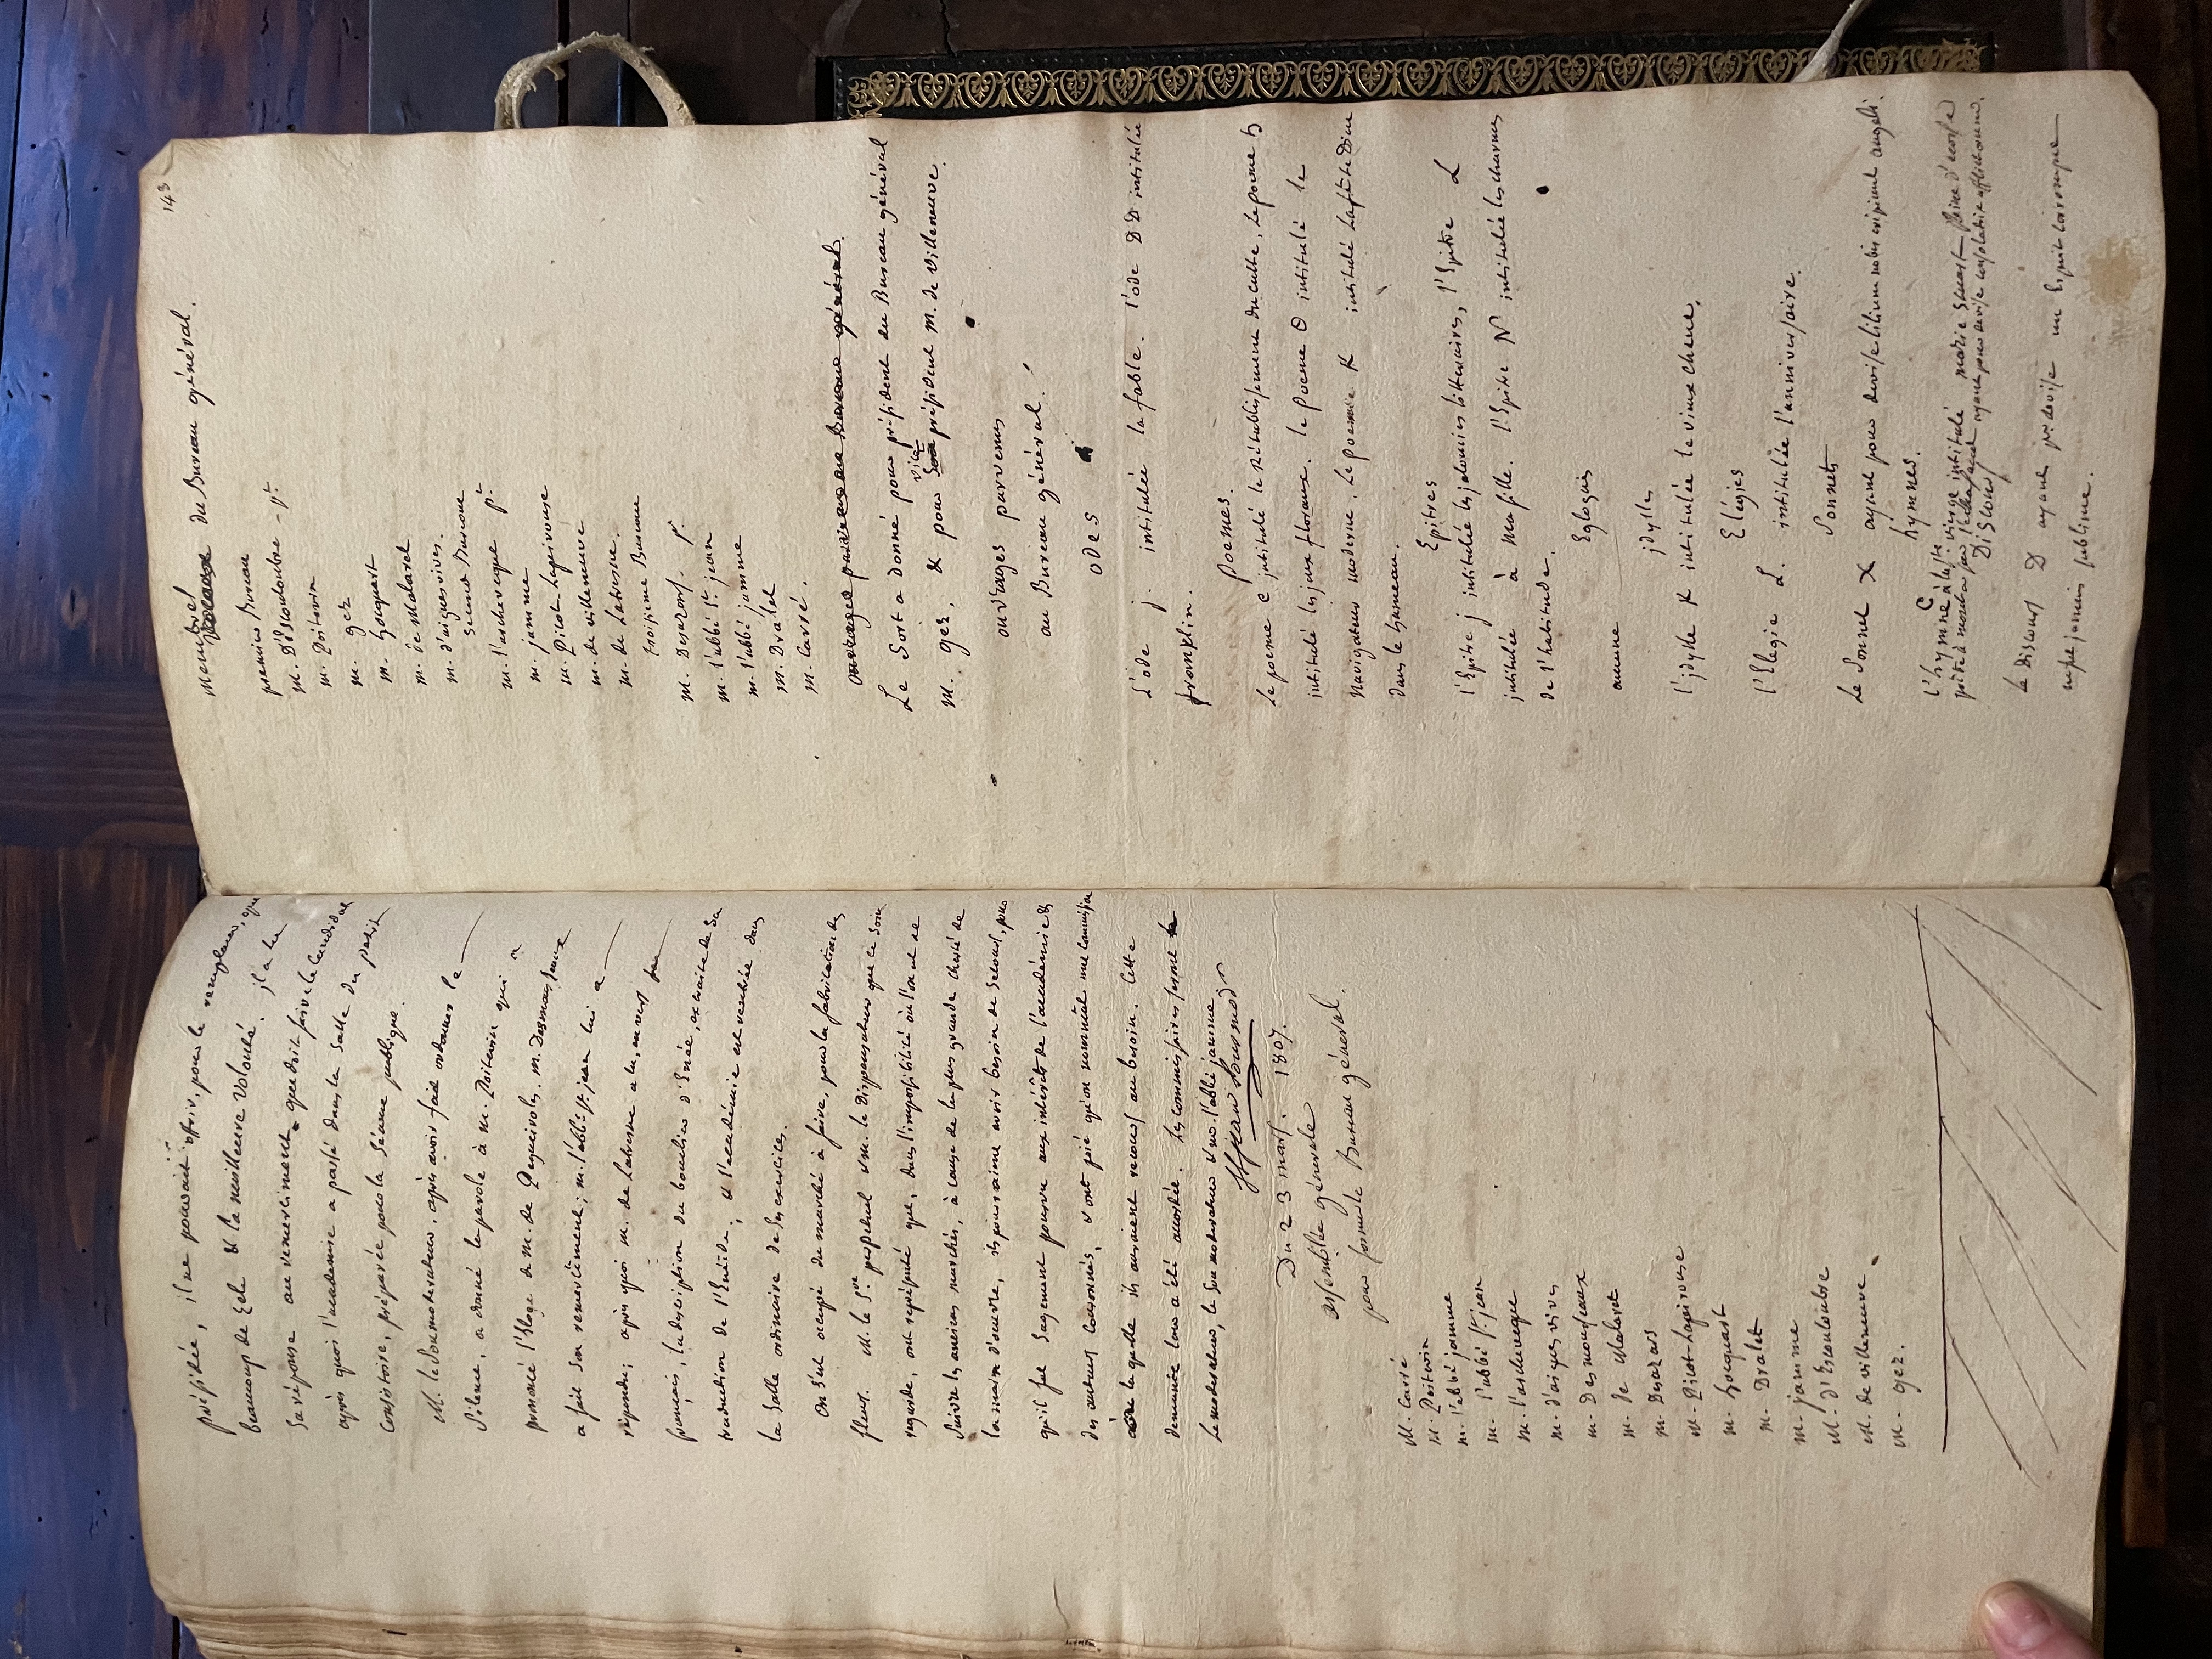 présidée, il ne pouvait offrir, pour le remplacer, que
beaucoup de zele & la meilleure volonté. il a lu
sa réponse au remerciment que doit faire le candidat
après quoi l'academie a passé dans la salle du petit
Consistoire, préparée pour la séance publique.
M. le Sousmoderateur, après avoir fait ordonner le
silence, a donné la parole à m. Poitevin qui a
prononcé l'Eloge de m. de Pequivoles. m. Desmousseaux
a fait son remerciment; m. l'abbé St. jean lui a
répondu; après quoi m. de Labusse a lu, en vers
francais, la description du bouclier d'Enée, extraite de sa
traduction de l'Eneïde; & l'académie est rentrée dans
la salle ordinaire de ses exercices.
On s'est occupé du marché à faire, pour la fabrication des
fleurs. M. le Sre. perpétuel & m. le Dispensateur que ce soin
regarde, ont représenté que, dans l'impossibilité où l'on est de
suivre les anciens marchés, à cause de la plus grande cherté de
la main d'oeuvre, ils pourraient avoir besoin de secours, pour
qu'il fut sagement pourvu aux intérêts de l'académie &
des auteurs couronnés, & ont prié qu'on nommât une commission
à laquelle ils auraient recours au besoin. Cette
demande leur a été accordée. les commissaires sont
Le moderateur, le Sousmoderateur & m. l'abbé jamme
Du 23 mars. 1807.
assemblée générale
pour former le Bureau général.
M. Carré
M. Poitevin
m. l'abbé jamme
m. l'abbé St. jean
m. l'archeveque
m. d'aigues vives
m. Desmousseaux
m. de Malaret
m. Desazars
m. Picot-Lapeirouse
m. hocquart
m. Dralet
m. jamme
M. d'Escouloubre
M. de villeneuve
M. gez.
143
membres du Bureau général.
premier Bureau
m. D'Escouloubre - pt.
m. Poitevin
m. gez
m. hocquart
m. de Malaret
m. d'aigues vives.
second Bureau
m. l'archeveque pt.
m. jamme
m. Picot-Lapeirouse
m. de villeneuve
m. de Labusse.
troisieme Bureau
m. Desazars. pt.
m. l'abbé St. jean
m. l'abbé jamme
m. Dralet
m. Carré.
ouvrages parvenus au Bureau général.
Le Sort a donné pour président du Bureau général
M. gez, & pour vice président m. de villeneuve.
ouvrages parvenus
au Bureau général.
odes
L'ode j. intitulée la fable. l'ode DD intitulée
franklin.
Poemes.
Le poeme C intitulé le Rétablissement du culte, le poeme h
intitulé les jeux floraux. le poeme O intitulé le
Navigateur moderne. le poeme K intitulé la fête Dieu
dans le hameau.
Epitres
l'Epitre j intitulée les jalousies litteraires, l'Epitre L
intitulée à ma fille. l'Epitre N intitulée les charmes
de l'habitude.
Eglogues
aucune
idylles
l'idylle K intitulée le vieux chene.
Elégies
l'Elegie L. intitulée l'anniversaire.
Sonnets
Le Sonnet X ayant pour devise lilium nobis eripiunt angeli.
hymnes.
l'hymne C à la Ste. vierge intitulé marie Stuart Reine d'ecosse
Discours
Le Discours D ayant pr. devise un Esprit corrompu
ne fut jamais sublime.